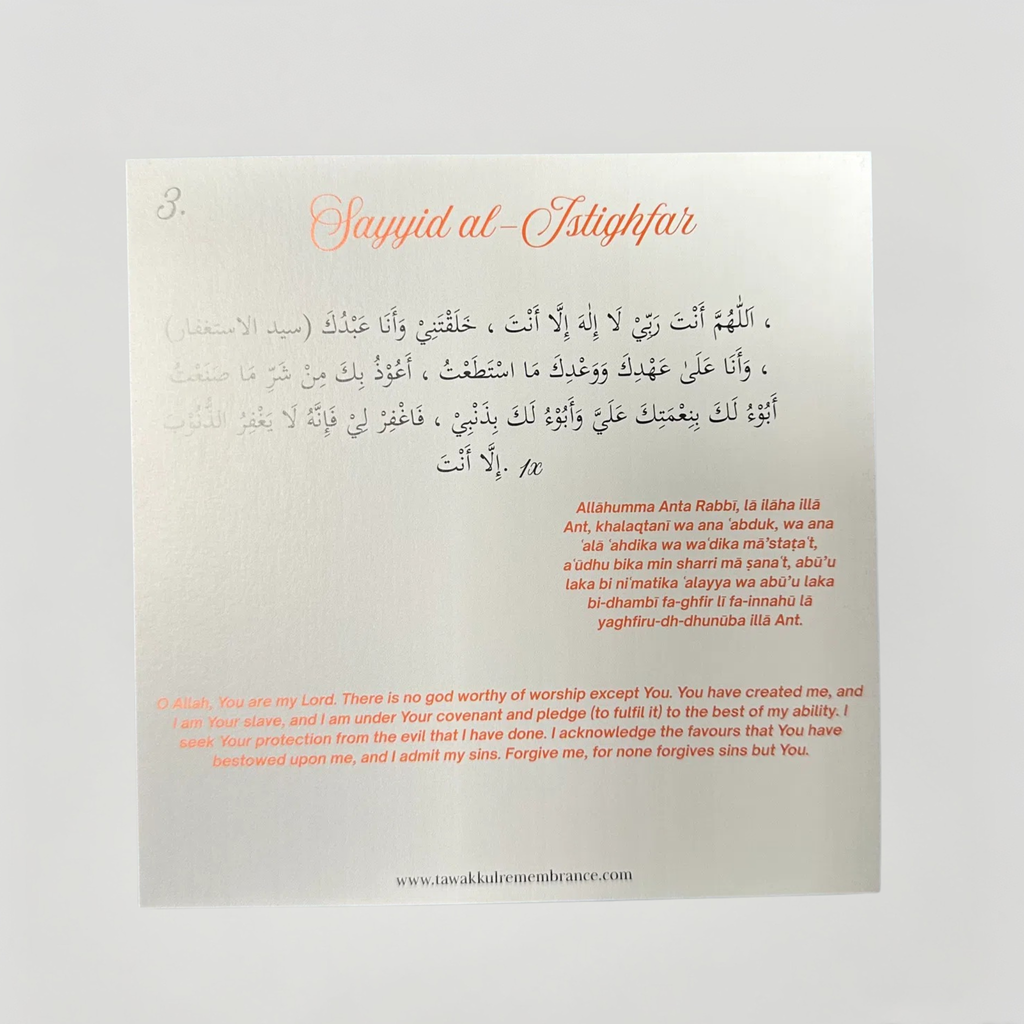 3.
Sayyid al-Istighfar
، اَللّٰهُمَّ أَنْتَ رَبِّيْ لَا إِلٰهَ إِلَّا أَنْتَ ، خَلَقْتَنِيْ وَأَنَا عَبْدُكَ (سيد الاستغفار)
، وَأَنَا عَلَىٰ عَهْدِكَ وَوَعْدِكَ مَا اسْتَطَعْتُ ، أَعُوْذُ بِكَ مِنْ شَرِّ مَا صَنَعْتُ
أَبُوْءُ لَكَ بِنِعْمَتِكَ عَلَيَّ وَأَبُوْءُ لَكَ بِذَنْبِيْ ، فَاغْفِرْ لِيْ فَإِنَّهُ لَا يَغْفِرُ الذُّنُوْبَ
إِلَّا أَنْتَ. 1x
Allāhumma Anta Rabbī, lā ilāha illā
Ant, khalaqtanī wa ana ʿabduk, wa ana
ʿalā ʿahdika wa waʿdika mā’staṭaʿt,
aʿūdhu bika min sharri mā ṣanaʿt, abū’u
laka bi niʿmatika ʿalayya wa abū’u laka
bi-dhambī fa-ghfir lī fa-innahū lā
yaghfiru-dh-dhunūba illā Ant.
O Allah, You are my Lord. There is no god worthy of worship except You. You have created me, and
I am Your slave, and I am under Your covenant and pledge (to fulfil it) to the best of my ability. I
seek Your protection from the evil that I have done. I acknowledge the favours that You have
bestowed upon me, and I admit my sins. Forgive me, for none forgives sins but You.
www.tawakkulremembrance.com